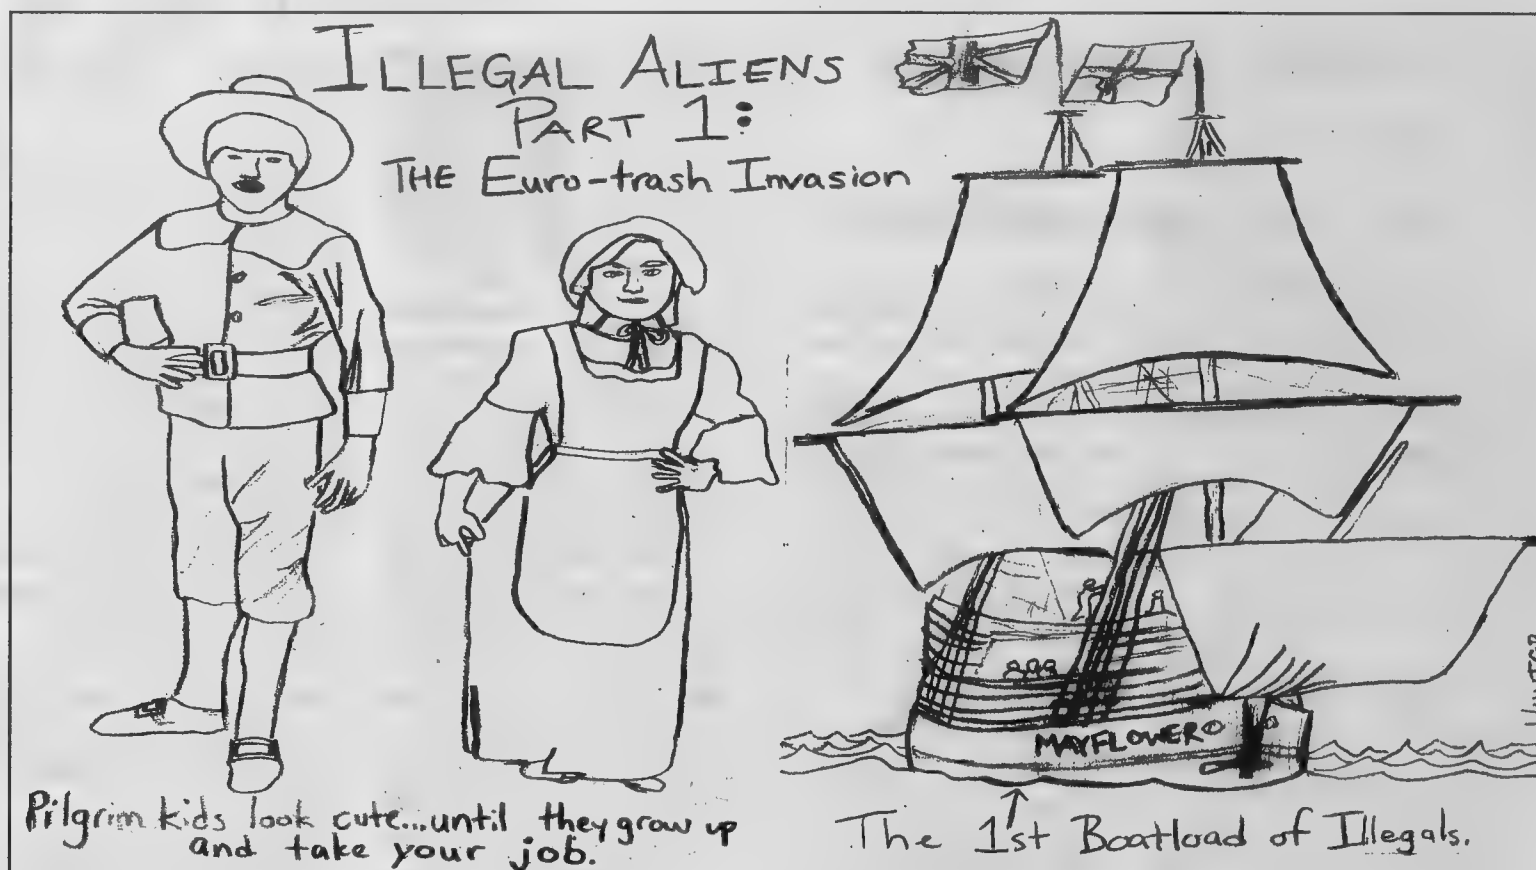 ILLEGAL ALIENS
PART 1:
THE Euro-trash Invasion
MAYFLOWER
Pilgrim kids look cute...until they grow up
and take your job.
The 1st Boatload of Illegals.